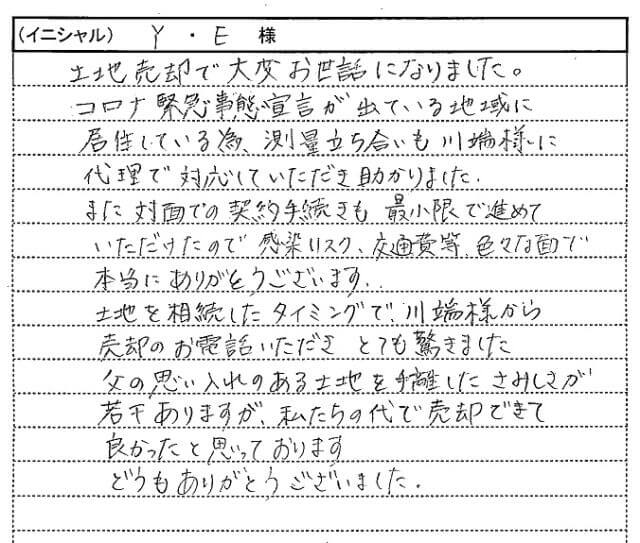 (イニシャル) Y・E 様
土地売却で大変お世話になりました。
コロナ緊急事態宣言が出ている地域に
居住している為、測量立ち合いも川端様に
代理で対応していただき助かりました.
また対面での契約手続きも最小限で進めて
いただけたので感染リスク、交通費等、色々な面で
本当にありがとうございます..
土地を相続したタイミングで、川端様から
売却のお電話いただき とても驚きました
父の思い入れのある土地を手離したさみしさが
若干ありますが、私たちの代で売却できて
良かったと思っております
どうもありがとうございました.